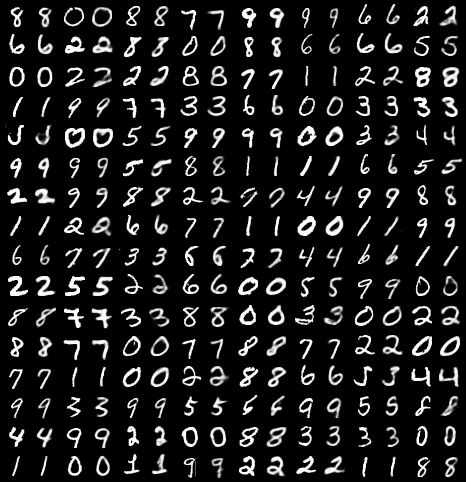 8 8 0 0 8 8 7 7 9 9 9 9 6 6 2 2
6 6 2 2 8 8 0 0 8 8 6 6 6 6 5 5
0 0 2 2 2 2 8 8 7 7 1 1 2 2 8 8
1 1 9 9 7 7 3 3 6 6 0 0 3 3 3 3
5 5 0 0 5 5 9 9 9 9 0 0 3 3 4 4
9 9 9 9 5 5 8 8 1 1 1 1 6 6 5 5
2 2 9 9 8 8 2 2 7 7 4 4 9 9 8 8
1 1 2 2 6 6 7 7 1 1 0 0 1 1 9 9
6 6 7 7 3 3 6 6 7 7 4 4 6 6 1 1
2 2 5 5 2 2 6 6 0 0 5 5 9 9 0 0
8 8 7 7 3 3 8 8 0 0 3 3 0 0 2 2
8 8 7 7 0 0 7 7 8 8 7 7 2 2 0 0
7 7 1 1 0 0 2 2 8 8 6 6 5 3 4 4
9 9 3 3 9 9 5 5 6 6 9 9 5 5 8 8
4 4 9 9 2 2 0 0 8 8 3 3 3 3 0 0
1 1 0 0 1 1 9 9 2 2 2 2 1 1 8 8